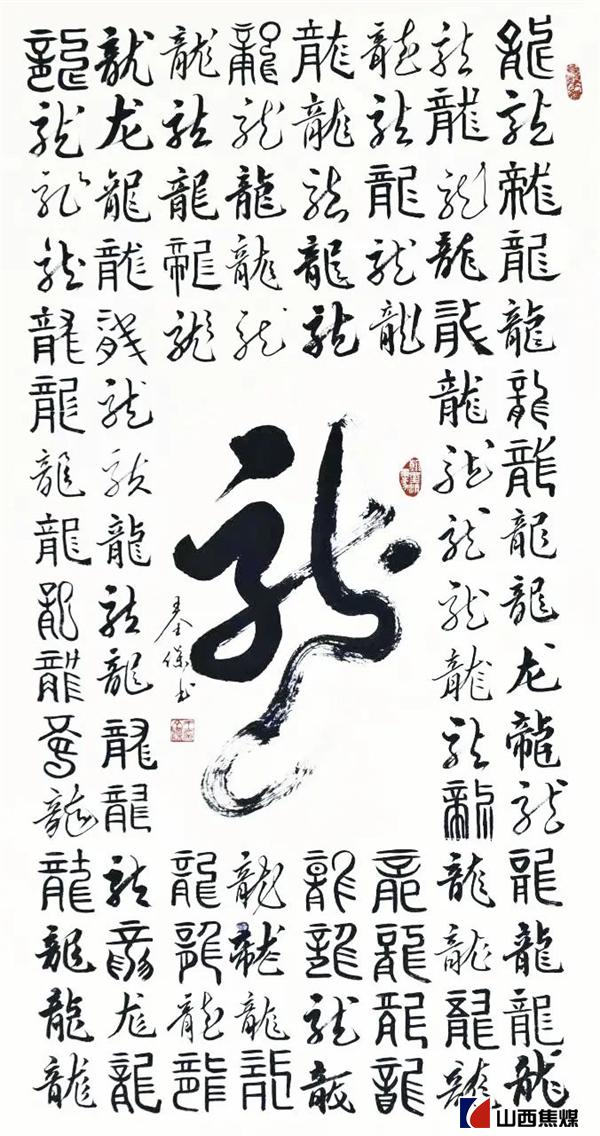 龍龍龍龍龍龍龍龍龍龙龍龍龍龍龍龍
龍龍龍龍龍龍龍龍龍龍龍龍龍龍龍龍
龍龍龍龍龍
龍龍龍龍龍
龍龍龍龍龍
龍龍龍龍龍
龍
龍龍龍龍
龍龍龍龍
龍龍龍龍
龍龍龍龍
龍龙龍龍龍龍龍龍龍龍龍龍龍龍龙龍
龍龍龍龍龍龍龍龍龍龍龍龍龍龍龍龍
山西焦煤